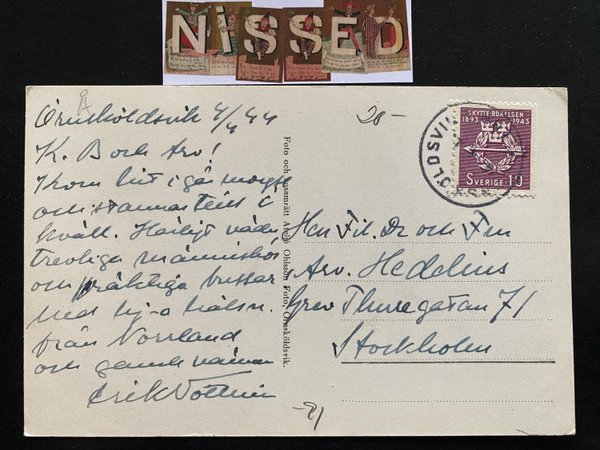 NISSED
Örnsköldsvik 4/4 44
K. B och Arv!
Kom hit i går morgse
och stannar till i
kväll. Härligt väder
trevliga människor
och präktiga bussar
Med hj-a hälsn.
från Norrland
och gamle vännen
Erik
20-
Foto och ensamrätt Ateljé Ohlsson Foto, Örnsköldsvik.
SKYTTE-RÖRELSEN
1893 1943
SVERIGE 10
ÖLDSVI
Herr Fil. Dr och Fru
Arv. Heddius
Grev Thuregatan 71
Stockholm